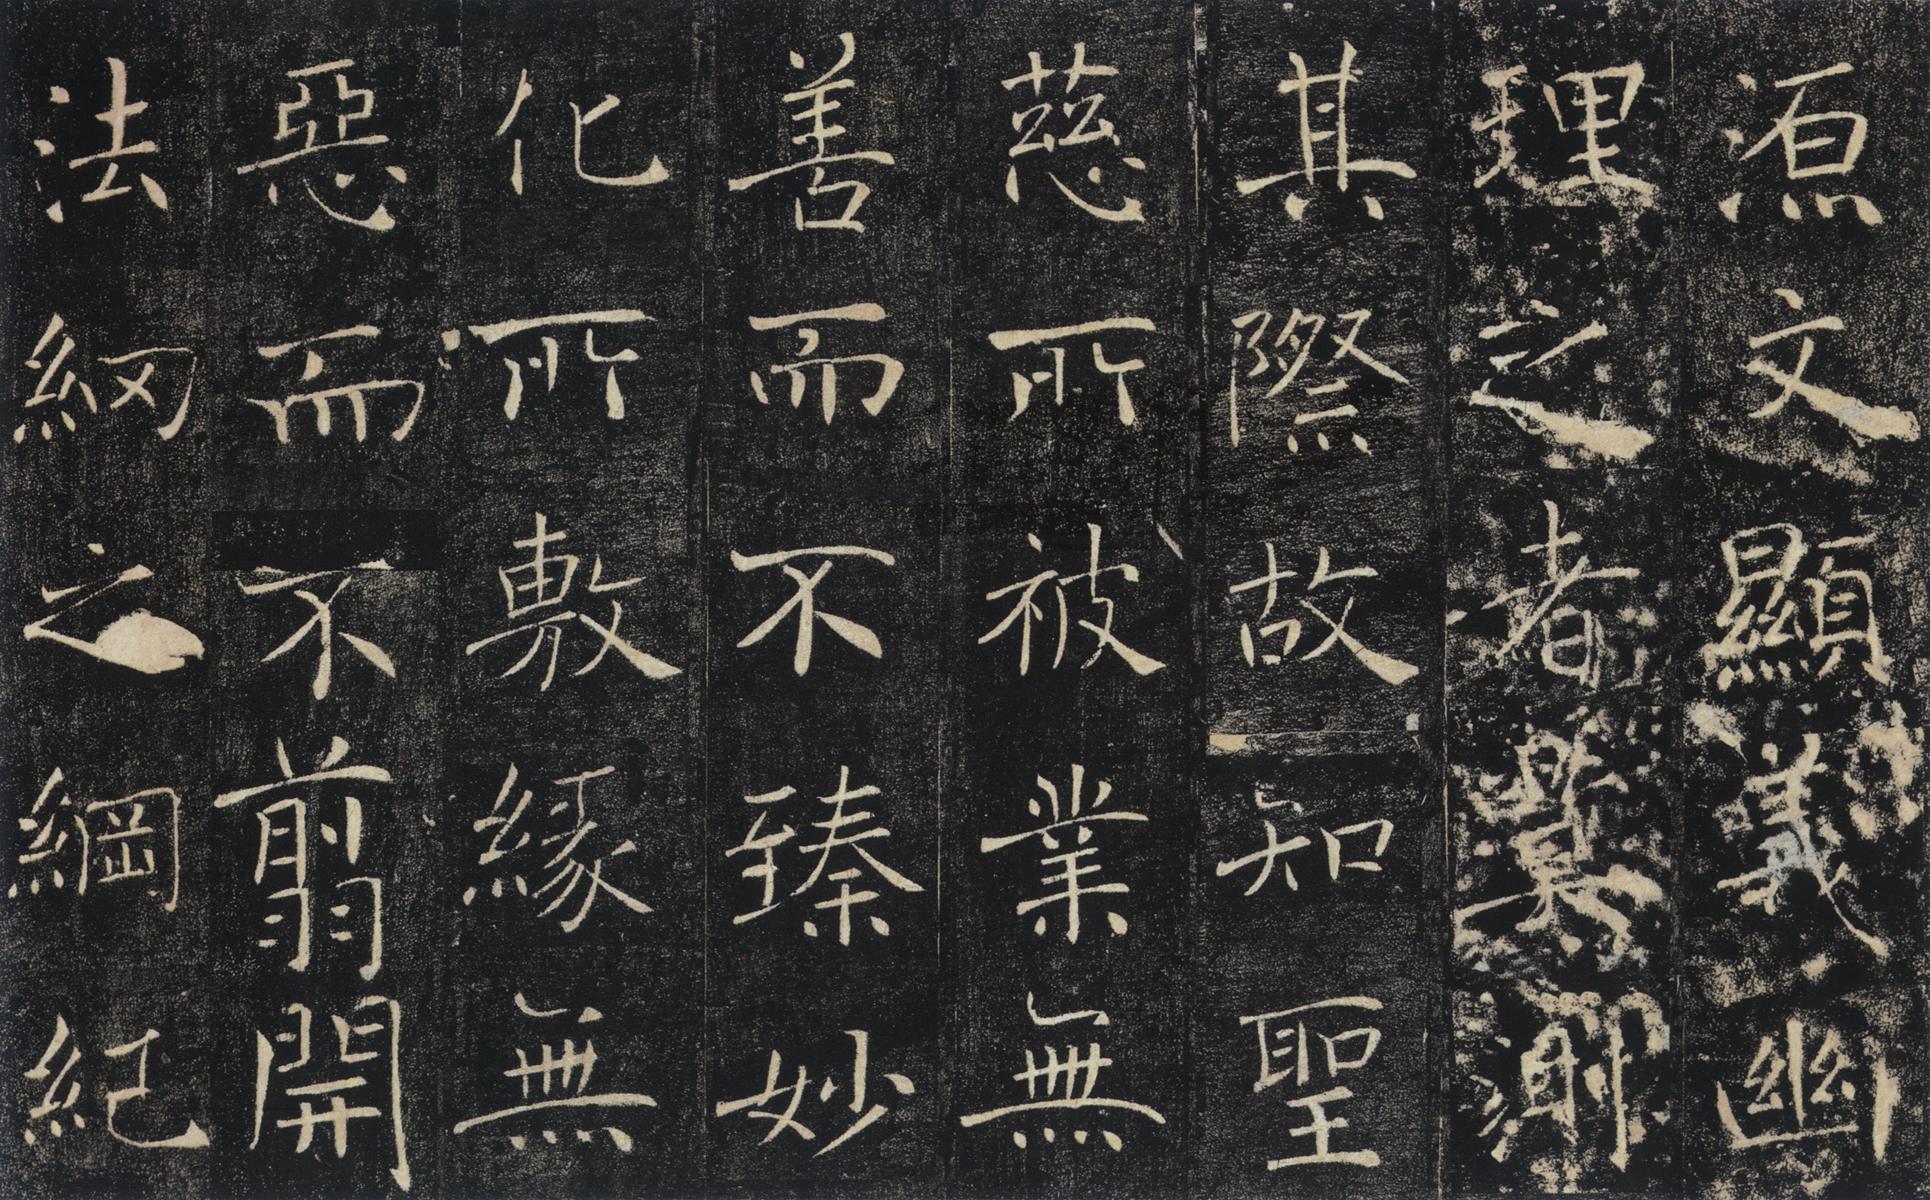 源文顯義幽
理之者莫測
其際故知聖
慈所被業無
善而不臻妙
化所敷緣無
惡而不翦開
法網之綱紀